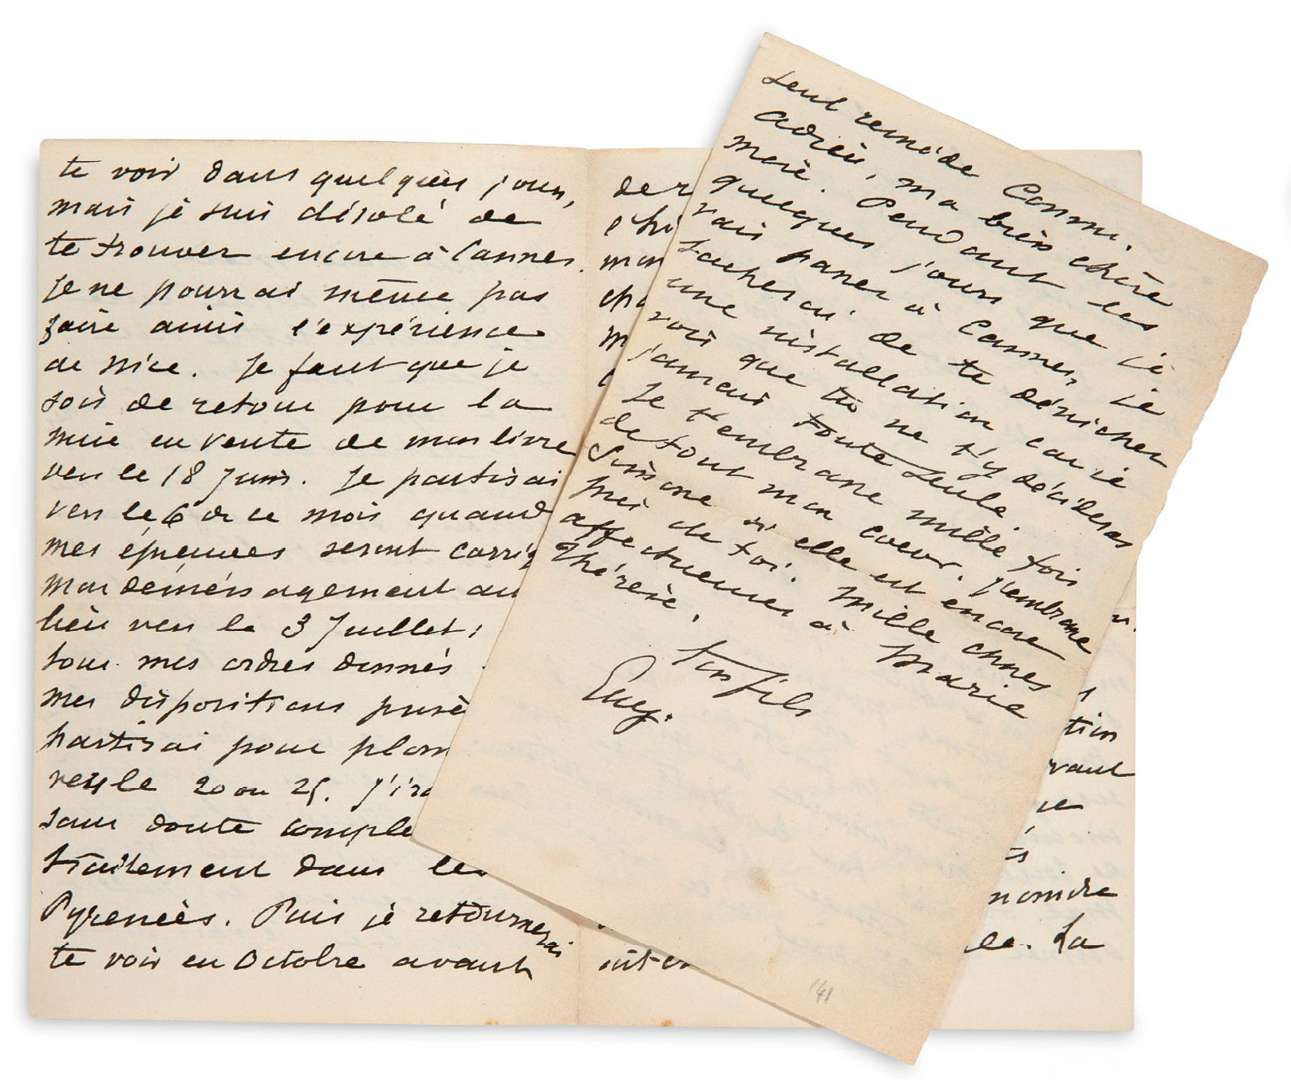 te voir dans quelques jours,
mais je suis désolé de
te trouver encore à Cannes.
Je ne pourrai même pas
faire ainsi l'expérience
de Nice. Il faut que je
sois de retour pour la
mise en vente de mon livre
vers le 18 Juin. Je partirai
vers le 6 de ce mois quand
mes épreuves seront corrig
mon déménagement au
lieu vers le 3 Juillet;
tous mes ordres donnés
mes dispositions prises
partirai pour plom
vers le 20 ou 25. J'ira
sans doute comple
traitement dans les
Pyrénées. Puis je retournerai
te voir en Octobre avant
de r
chi
mon
cha
m
tion
vant
ne
moindre
lle. La
seul remède connu.
Adieu, ma bien chère
mère. Pendant les
quelques jours que je
vais passer à Cannes, je
tacherai de te dénicher
une installation car je
vois que tu ne t'y décideras
jamais toute seule.
Je t'embrasse mille fois
de tout mon coeur. J'embrasse
Simone si elle est encore
près de toi. Mille choses
affectueuses à Marie
Thérèse.
Ton fils
Guy.
141